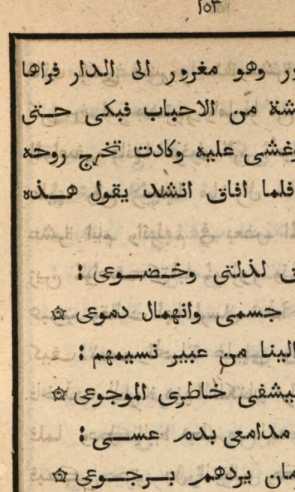 ١٥٣
ور وهو مغرور الى الدار فراها
شة من الاحباب فبكى حتى
وغشى عليه وكادت تخرج روحه
فلما افاق انشد يقول هـــذه
لذلتى وخـــضـــوعى :
جسمى وانهمال دموعى ☆
الينا من عبير نسيمهم :
يشفى خاطرى الموجوعى ☆
مدامعى بدم عســـى :
مان يردهم بـــرجـــوعى ☆